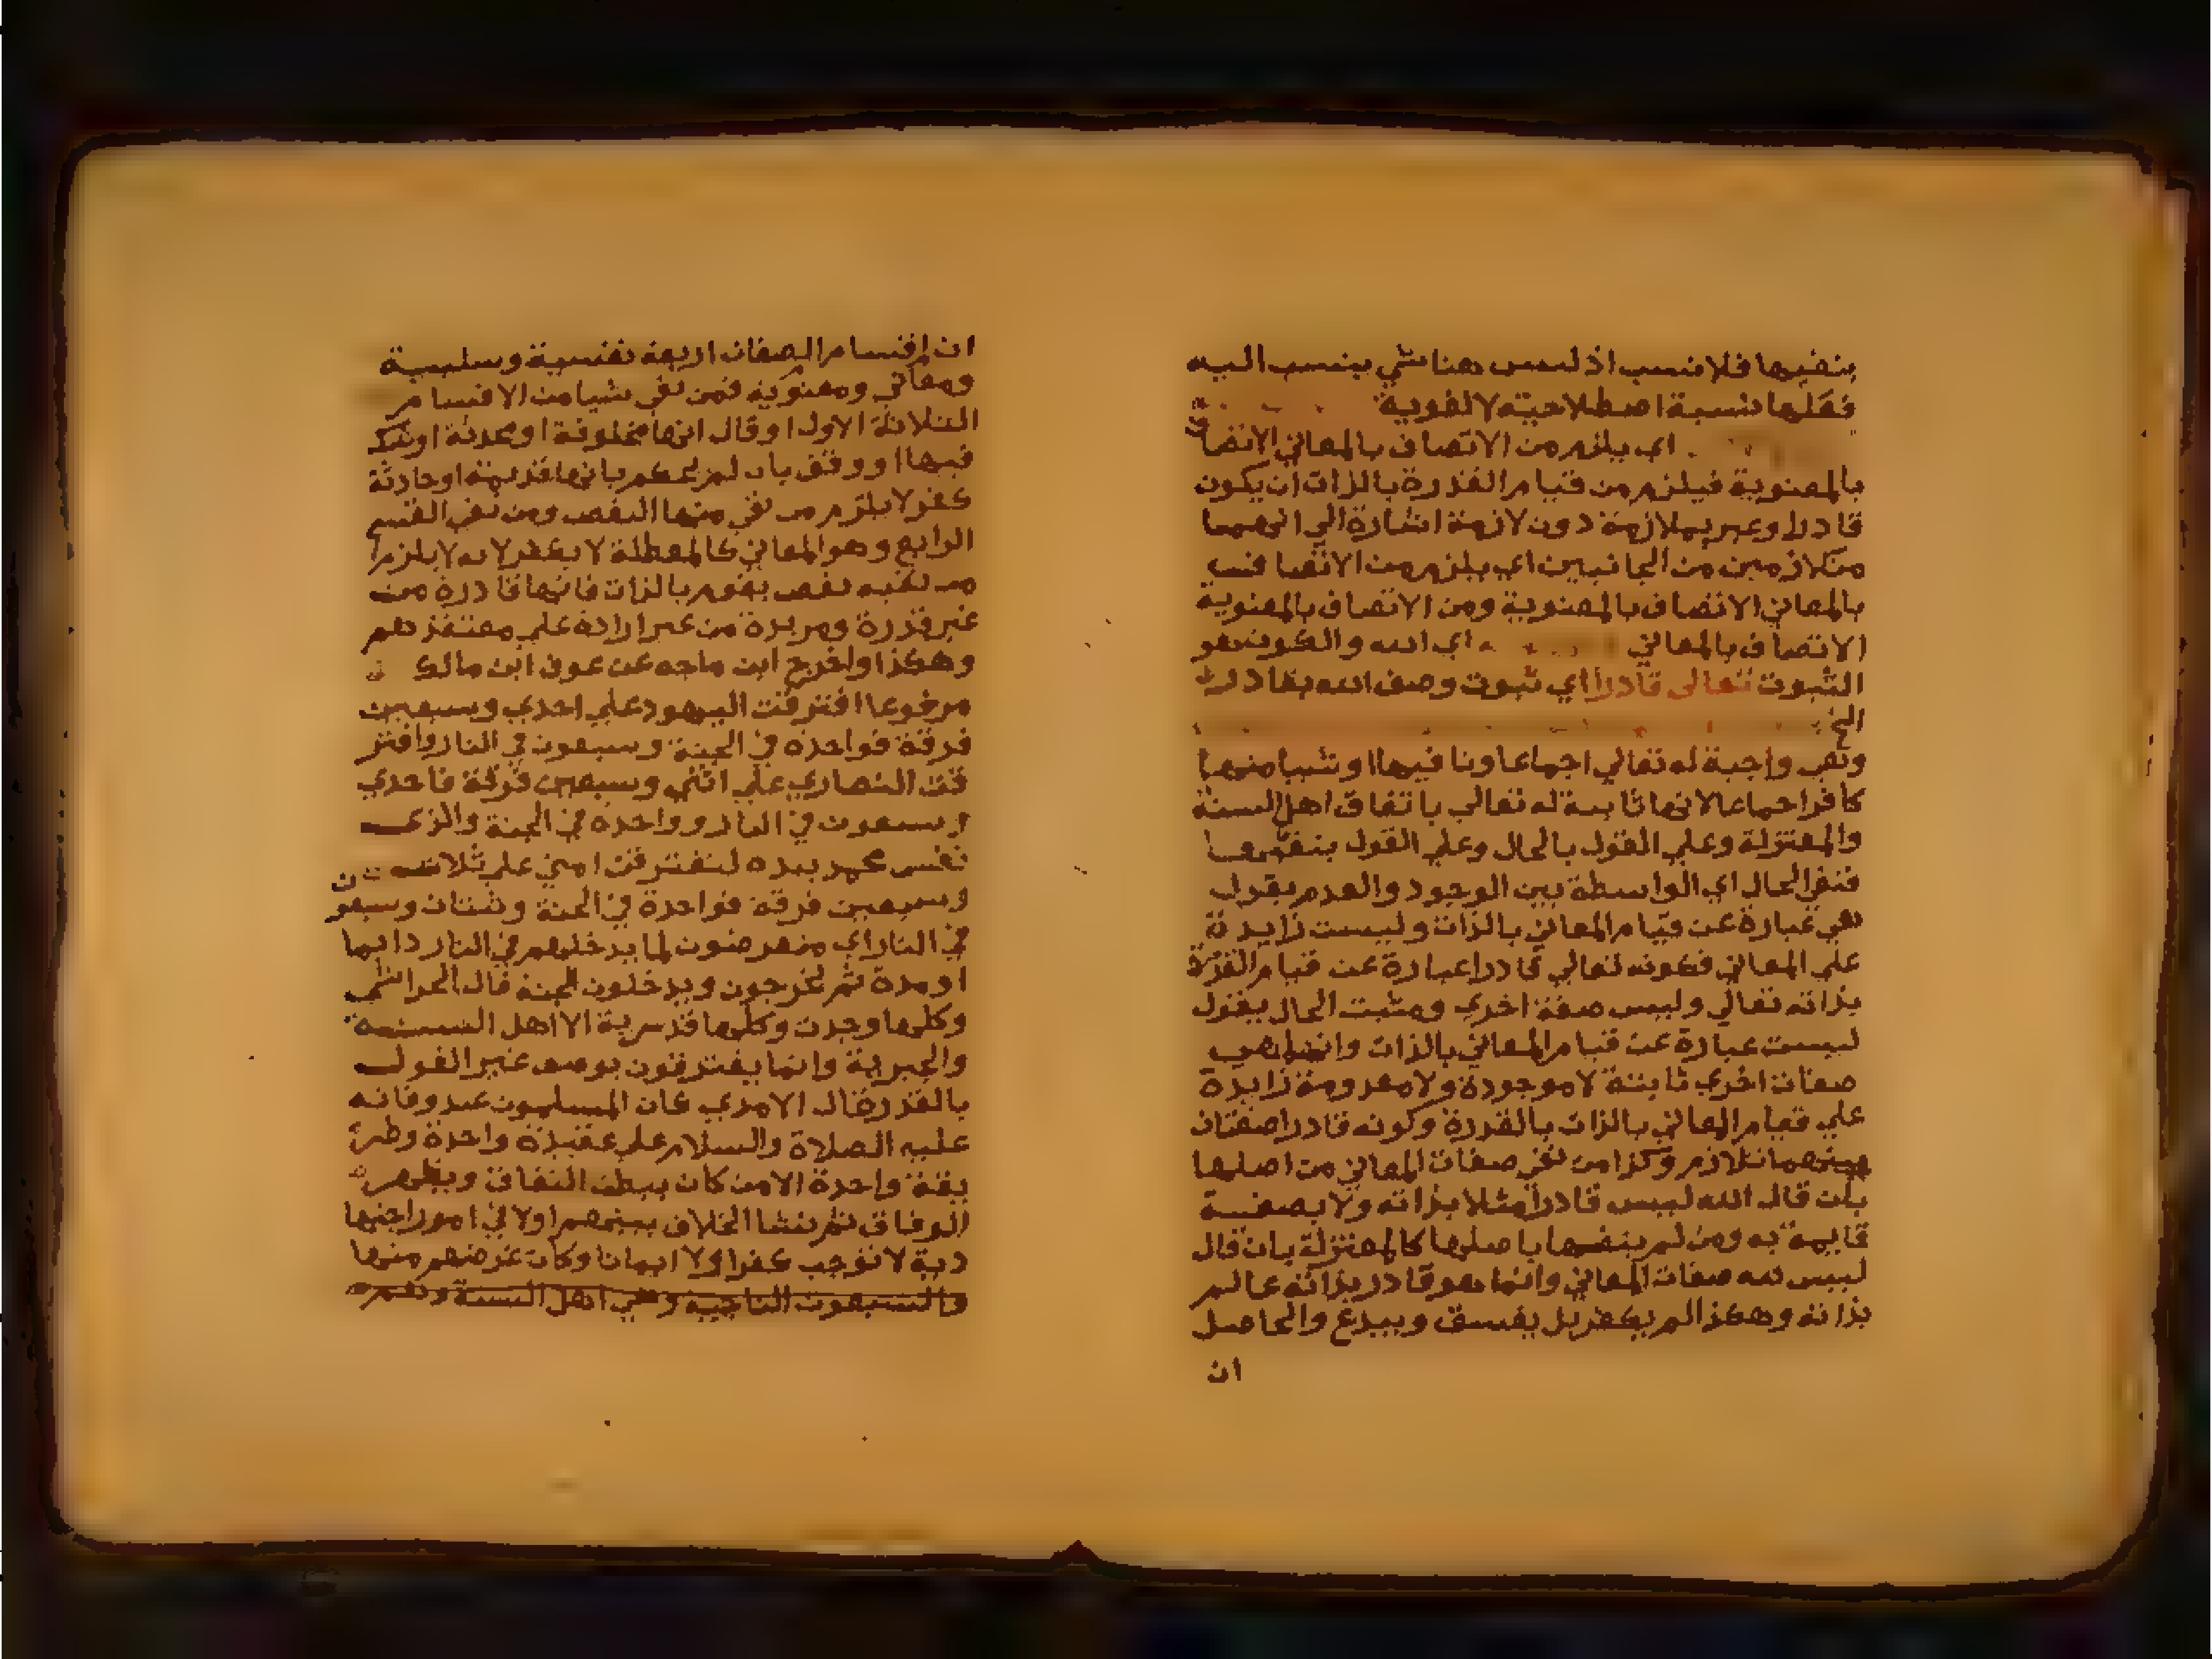 ينفيها فلا ننسب اذ ليس هنا شي ينسب اليه
فكلها نسبة اصطلاحية لا لغوية
اي يلزم من الاتصاف بالمعاني الاتصا
بالمعنوية فيلزم من قيام القدرة بالذات ان يكون
قادرا وعبر بملازمة دون لازمة اشارة الي انهما
متلازمين من الجانبين اي يلزم من الاتصا ف
بالمعاني الاتصاف بالمعنوية ومن الاتصاف بالمعنوية
الاتصاف بالمعاني اي الله والكون هو
الثبوت تعالى قادرا اي ثبوت وصف الله بقادر
الخ
وهي واجبة له تعالي اجماعا ونافيها او شيا منها
كافر اجماعا لانها ثابتة له تعالي باتفاق اهل السنة
والمعتزلة وعلي القول بالحال وعلي القول بنفيها
فنفي الحال اي الواسطة بين الوجود والعدم يقول
هي عبارة عن قيام المعاني بالذات وليست زايدة
علي المعاني فكونه تعالي قادرا عبارة عن قيام القدرة
بذاته تعالي وليس صفة اخري ومثبت الحال يقول
ليست عبارة عن قيام المعاني بالذات وانما هي
صفات اخري ثابتة لا موجودة ولا معدومة زايدة
علي قيام المعاني بالذات بالقدرة وكونه قادرا صفتان
بينهما تلازم وكذا من نفي صفات المعاني من اصلها
بان قال الله ليس قادرا مثلا بذاته ولا بصفة
قايمة به ومن لم ينفيها باصلها كالمعتزلة بان قال
ليس له صفات المعاني وانما هو قادر بذاته عالم
بذاته وهكذا لم يكفر بل يفسق ويبدع والحاصل
ان
ان اقسام الصفات اربعة نفسية وسلبية
ومعاني ومعنوية فمن نفي شيا من الاقسام
الثلاثة الاول او قال انها مخلوقة او محدثة او شك
فيها او وقف بان لم يحكم بانها قديمة او حادثة
كفر لا يلزم من نفي منها النقص ومن نفي القسم
الرابع وهو المعاني كالمعطلة لا يكفر لانه لا يلزم
من نفيه نقص يقوم بالذات فانها قادرة من
غير قدرة ومريدة من غير ارادة علي معتقدهم
وهكذا واخرج ابن ماجه عن عوف ابن مالك
مرفوعا افترقت اليهود علي احدي وسبعين
فرقة فواحدة في الجنة وسبعون في النار وافتر
قت النصاري علي اثني وسبعين فرقة فاحدي
وسبعون في النار وواحدة في الجنة والذي
نفس محمد بيده لتفترقن امتي علي ثلاث
وسبعين فرقة فواحدة في الجنة وثنتان وسبعون
في النار اي متعرضون لما يدخلهم في النار دايما
او مدة ثم يخرجون ويدخلون الجنة قال
وكلها وجدت وكلها قدرية الا اهل السنة
والجبرية وانما يفترقون بوصف غير القول
بالقدر قال الامدي كان المسلمون عند وفاته
عليه الصلاة والسلام علي عقيدة واحدة وطر
يقة واحدة الا من كان يبطن النفاق ويظهر
الوفاق ثم نشا الخلاف بينهم اولا في امور اجتها
دية لا توجب كفرا ولا ايمانا وكان غرضهم منها
والسبعون الناجية وهي اهل السنة وهم